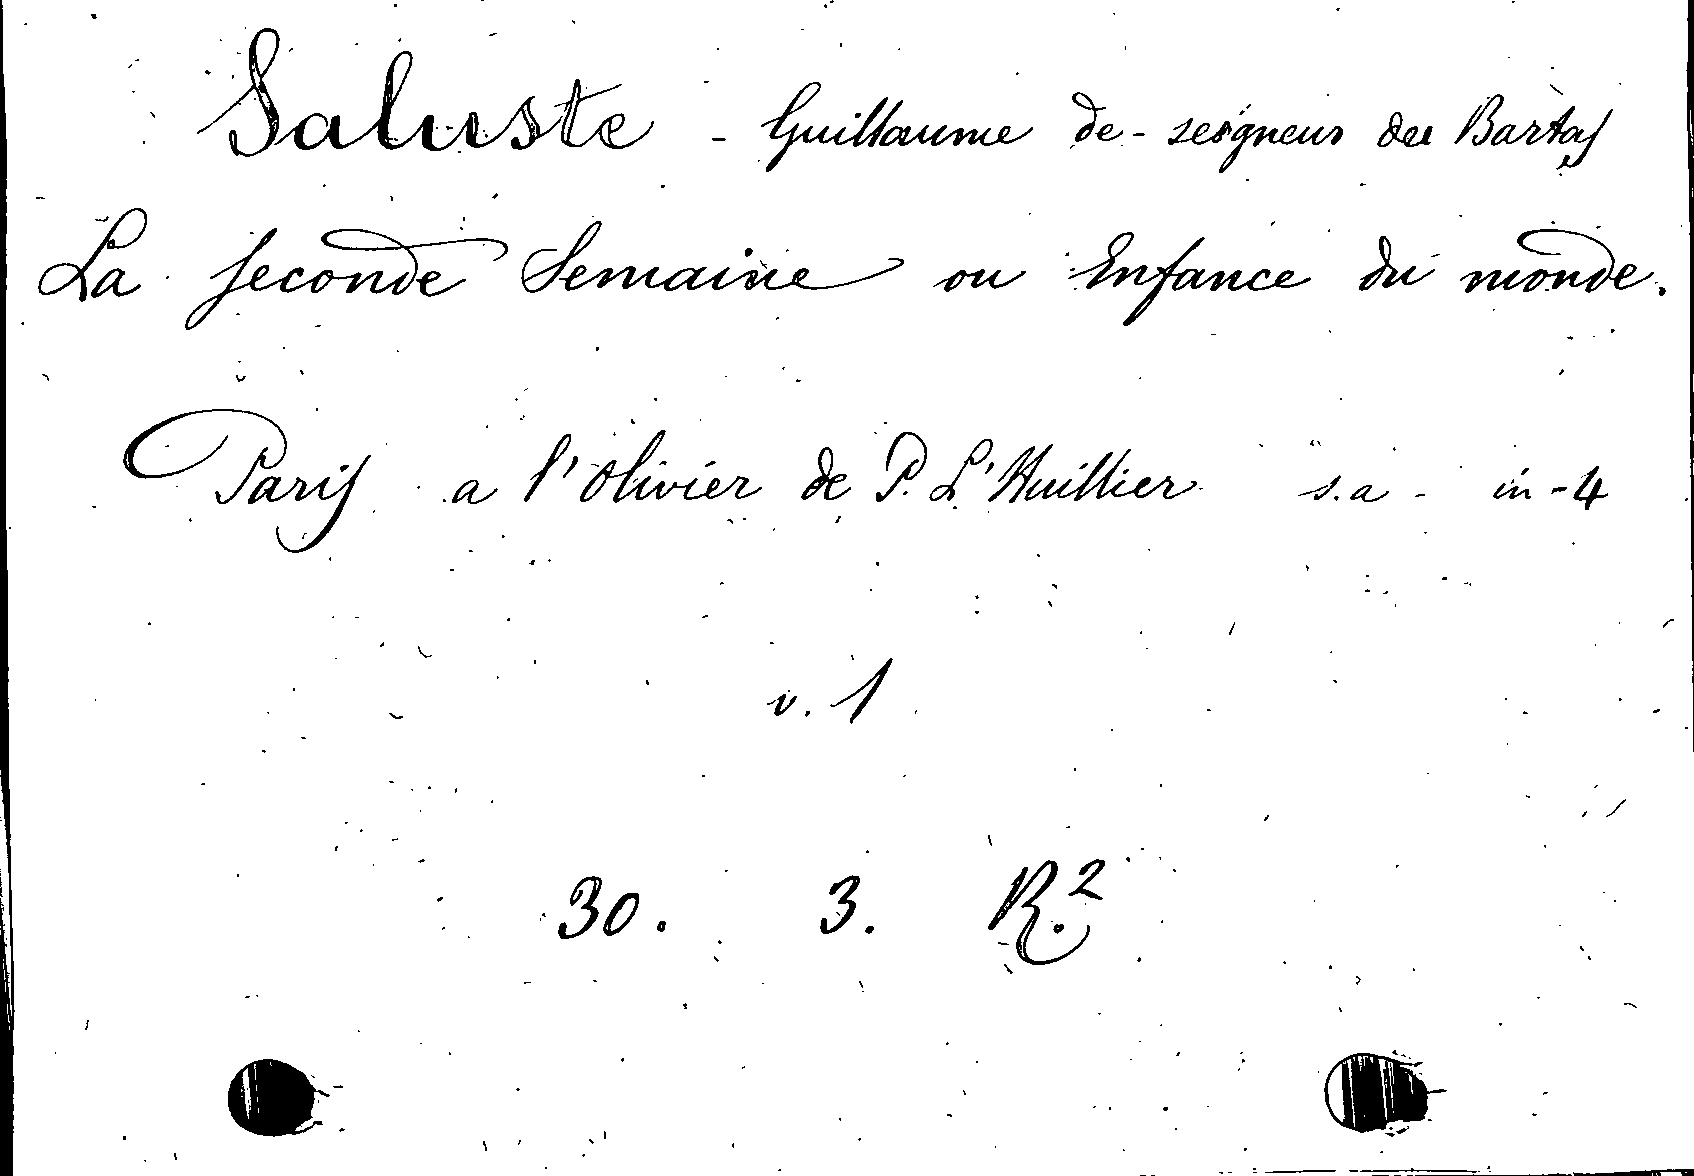 Saluste - Guillaume de - seigneur du Bartas
La seconde Semaine ou Enfance du monde.
Paris a l'Olivier de P. L'Huillier s.a - in-4
v. 1
30. 3. R.2